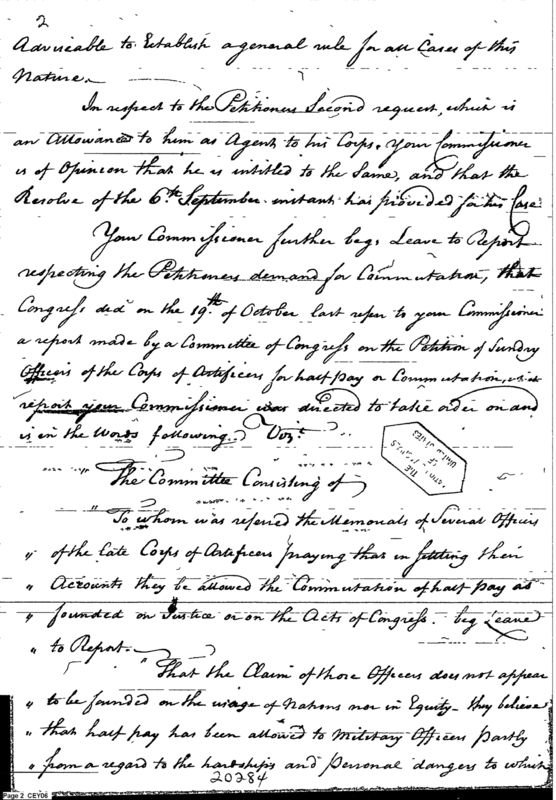 2
Adviseable to Establish a general rule for all Cases of this
Nature.
In respect to the Petitioners Second request, which is
an Allowance to him as Agent to his Corps. Your Commissioner
is of Opinion that he is intitled to the Same, and that the
Resolve of the 6th September instant has provided for his Case
Your Commissioner further begs Leave to Report
respecting the Petitioners demand for Commutation, that
Congress did on the 19th of October last refer to your Commissioner
a report made by a Committee of Congress on the Petition of Sundry
Officers of the Corps of Artificers for half pay or Commutation, which
report your Commissioner was directed to take order on and
is in the Words following. Vizt
The Committee Consisting of
" To whom was referred the Memorials of Several Officers
" of the late Corps of Artificers praying that in settling their
" Accounts they be allowed the Commutation of half pay as
" founded on Justice or on the Acts of Congress. beg Leave
" to Report.
" That the Claim of those Officers does not appear
" to be founded on the usage of Nations nor in Equity - they believe
" that half pay has been allowed to Military Officers partly
" from a regard to the hardships and personal dangers to which
20284
Page 2 CEY06